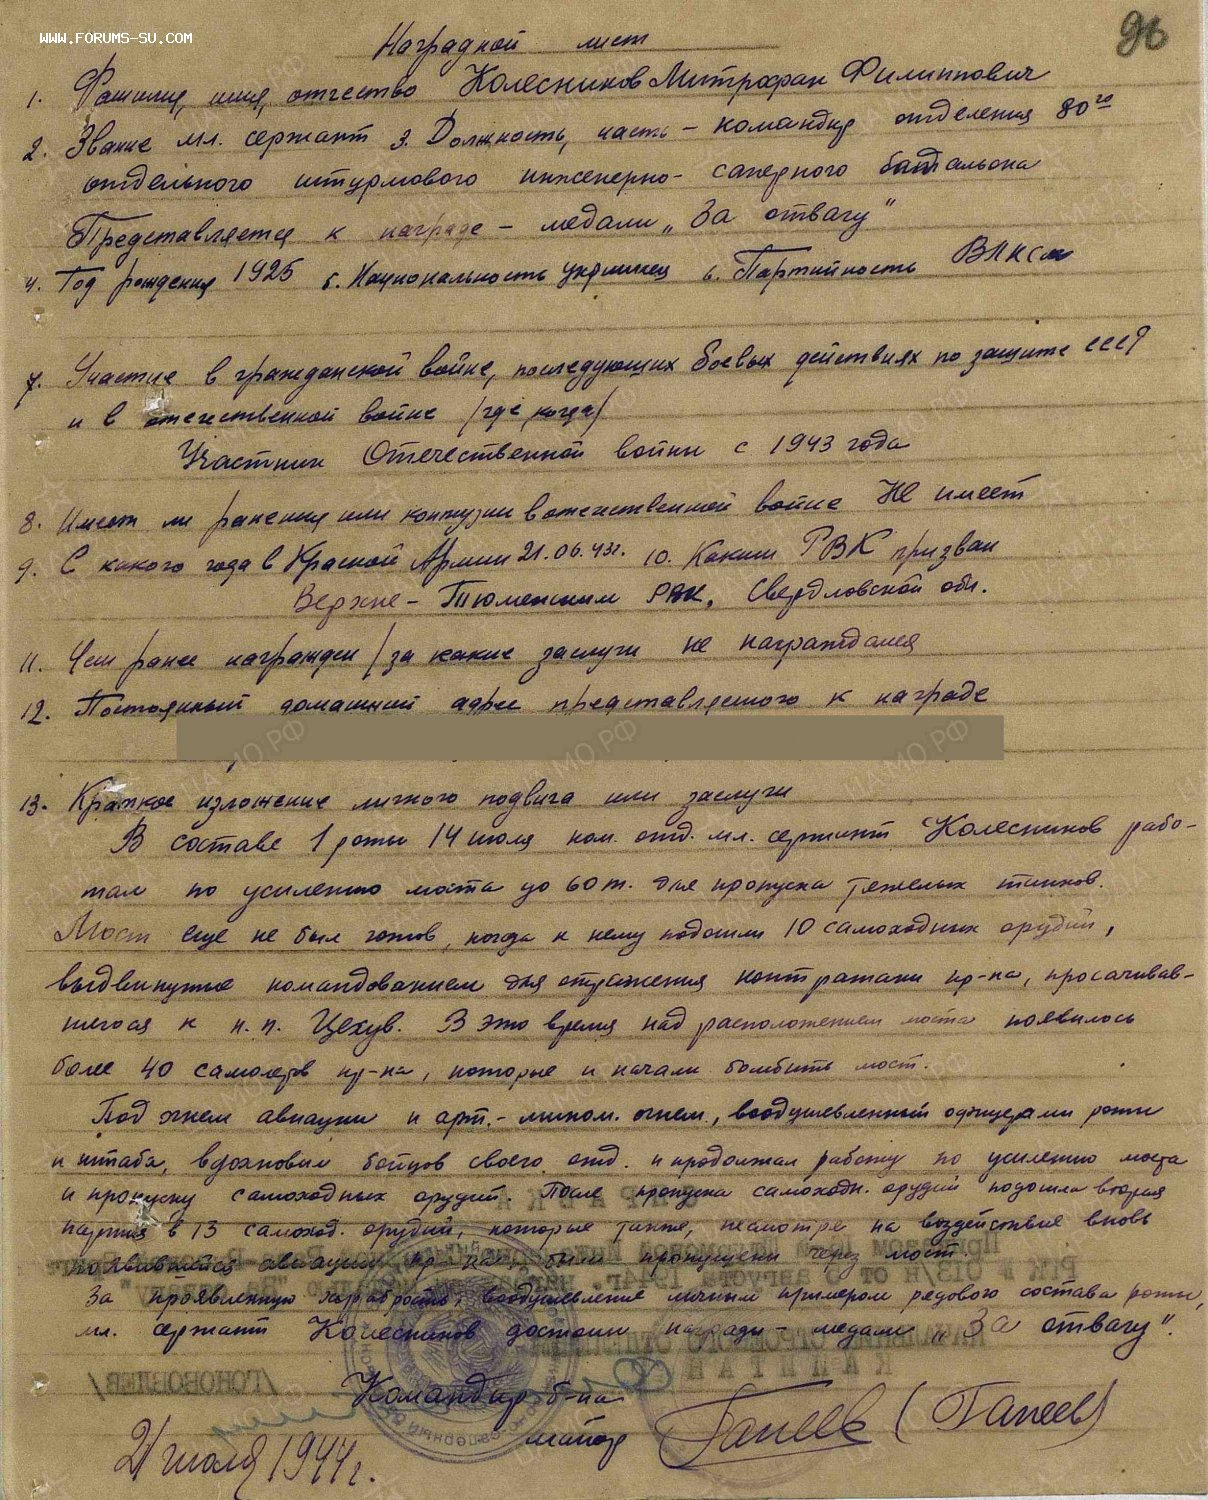 www.forums-su.com
96
Наградной лист
1. Фамилия, имя, отчество Колесников Митрофан Филиппович
2. Звание мл. сержант 3. Должность, часть – командир отделения 80го
отдельного штурмового инженерно- саперного батальона
Представляется к награде – медали „За отвагу"
4. Год рождения 1925 5. Национальность украинец 6. Партийность ВЛКСМ
7. Участие в гражданской войне, последующих боевых действиях по защите СССР
и в отечественной войне /где, когда/
Участник Отечественной войны с 1943 года
8. Имеет ли ранения или контузии в отечественной войне Не имеет
9. С какого года в Красной Армии 21.06.43г. 10. Каким РВК призван
Верхне-Тюменским РВК, Свердловской обл.
11. Чем ранее награжден /за какие заслуги не награждался
12. Постоянный домашний адрес представляемого к награде
13. Краткое изложение личного подвига или заслуги
В составе 1 роты 14 июля ком. отд. мл. сержант Колесников рабо-
тал по усилению моста до 60 т. для пропуска тяжелых танков.
Мост еще не был готов, когда к нему подошли 10 самоходных орудий,
выдвинутые командованием для отражения контратаки пр-ка, просачивав-
шегося к н.п. Цехув. В это время над расположением моста появилось
более 40 самолетов пр-ка, которые и начали бомбить мост.
Под огнем авиации и арт.-мином. огнем, воодушевленный офицерами роты
и штаба, вдохновил бойцов своего отд. и продолжал работу по усилению моста
и пропуску самоходных орудий. После пропуска самоходн. орудий подошла вторая
партия в 13 самоход. орудий, которые также, несмотря на воздействие вновь
появившейся авиации пр-ка, были пропущены через мост
За проявленную храбрость, воодушевление личным примером рядового состава роты,
мл. сержант Колесников достоин награды – медали „За отвагу".
Командир б-на
майор Гапеев (Гапеев)
21 июля 1944г.